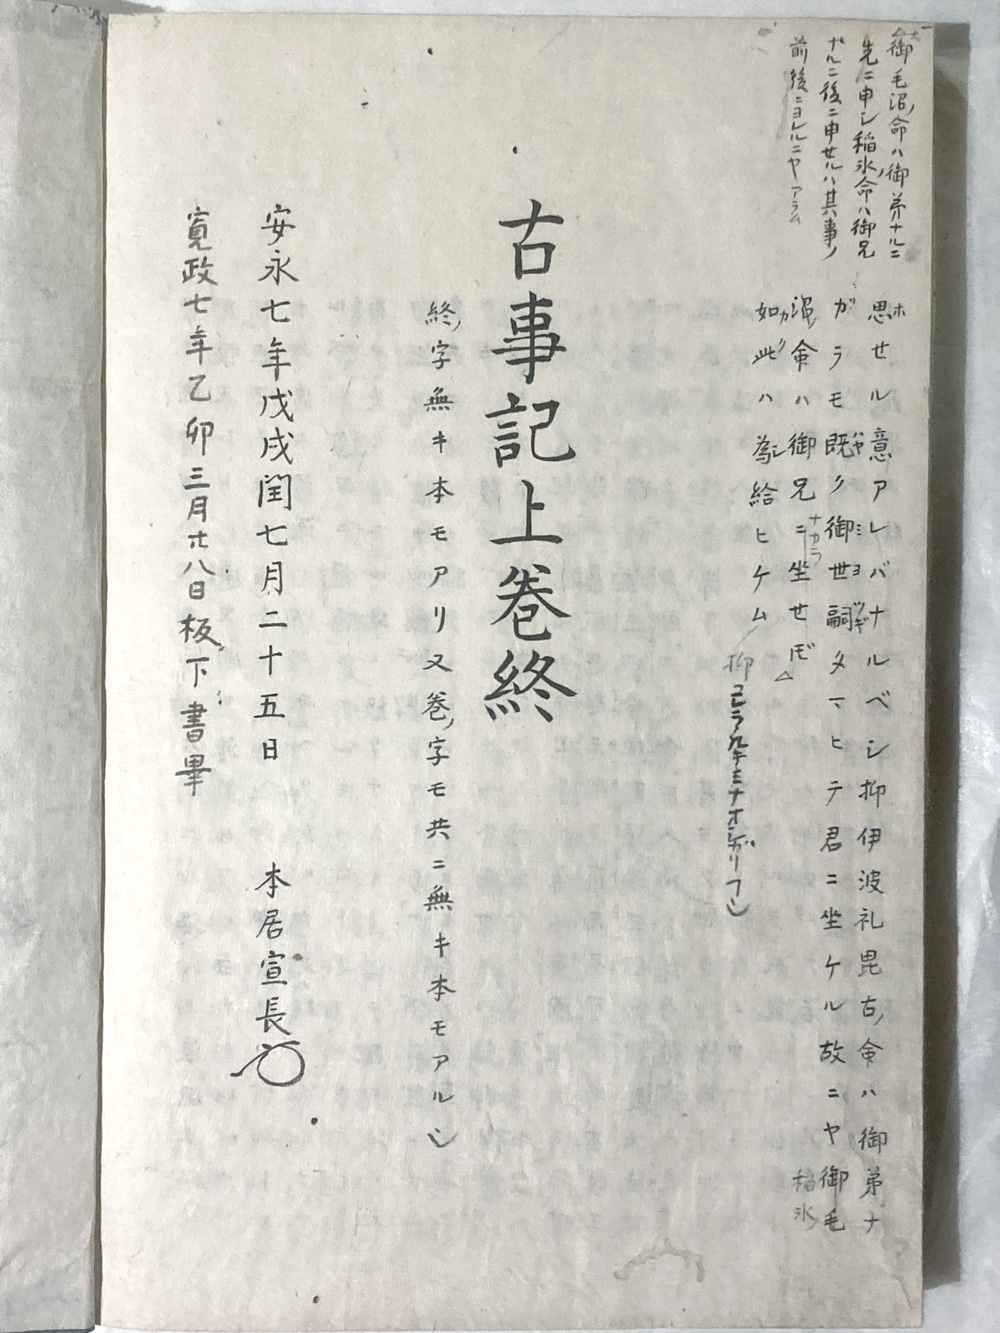 御毛沼ノ命ハ御弟ナルニ
先ニ申シ稲氷ノ命ハ御兄
ナルニ後ニ申セルハ其事ノ
前後ニヨレルニヤアラム
思ホせル意アレバナルベシ抑伊波礼毘古ノ命ハ御弟ナ
ガラモ既ク御世嗣タマヒテ君ニ坐ケル故ニヤ御毛
沼ノ命ハ御兄ニ坐せドモ
稲氷
如此ハ為給ヒケム
古事記上巻終
終ノ字無キ本モアリ又巻ノ字モ共ニ無キ本モアルナリ
安永七年戊戌閏七月二十五日 本居宣長
寛政七年乙卯三月廿八日板下書畢